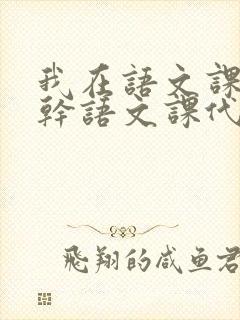 我在語文課
幹語文課代
飛翔的咸鱼君